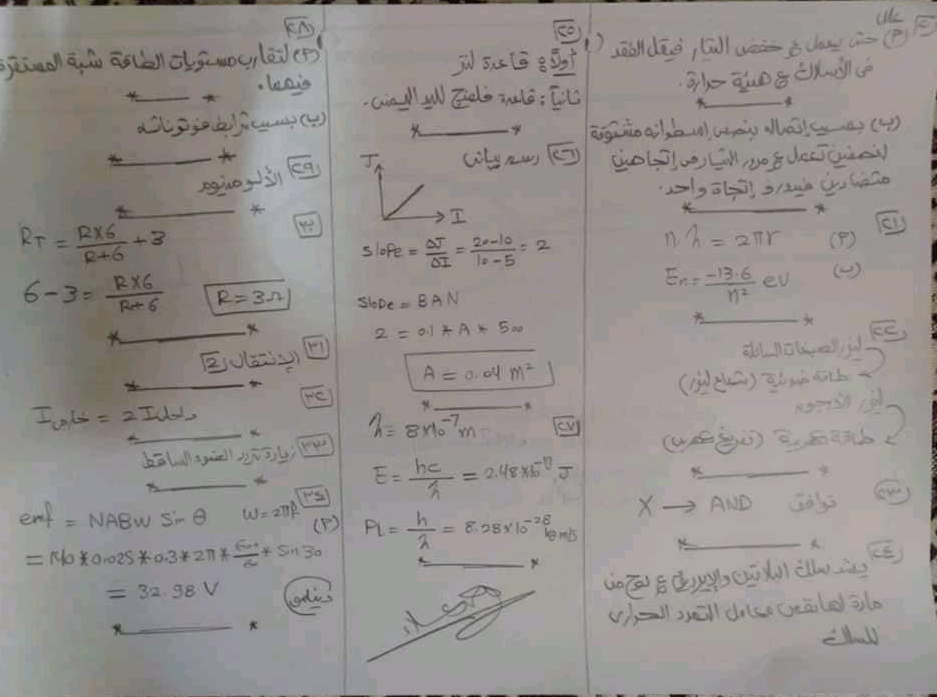 (٢) حتى يعمل ع خفض التيار فيقل الفقد
فى الأسلاك ع هيئة حرارة.
(ب) بسبب إتصاله بنصفى إسطوانه مشقوقة
لنصفين تعمل ع مرور التيار فى إتجاهين
متضادين فيدور فى إتجاة واحد.
٢١
(٢) n.λ = 2πr
(ب) En = -13.6/n² eV
٢٢ ليزر الصبغات السائلة
طاقة ضوئية (شعاع ليزر)
ليزر
طاقة كهربية (تفريغ كهربى)
٢٣ توافق X → AND
٢٤ يشد سلك البلاتين والإيريديوم ع لوح من
مادة لها نفس معامل التمدد الحرارى
للسلك
٢٥
أولاً: قاعدة لنز
ثانياً: قاعدة فلمنج لليد اليمنى.
٢٦ رسم بيانى
J
I
Slope = ΔJ/ΔI = 20-10/10-5 = 2
Slope = BAN
2 = 0.1 * A * 500
A = 0.04 m²
٢٧
λ = 8×10⁻⁷ m
E = hc/λ = 2.48×10⁻¹⁹ J
PL = h/λ = 8.28×10⁻²⁸ kg m/s
٢٨
(٢) لتقارب مستويات الطاقة شبة المستقرة
فيهما.
(ب) بسبب ترابط فوتوناته
٢٩ الألومنيوم
٣٠
RT = R×6/R+6 + 3
6-3 = R×6/R+6 R = 3Ω
٣١ الإنتقال 2
٣٢
I خارجى = 2I داخلى
٣٣ زيادة تردد الضوء الساقط
٣٤
emf = NABW Sin θ W = 2πf
(٢)
* 0.025 * 0.3 * 2π * * Sin 30
= 32.98 V
دينامو